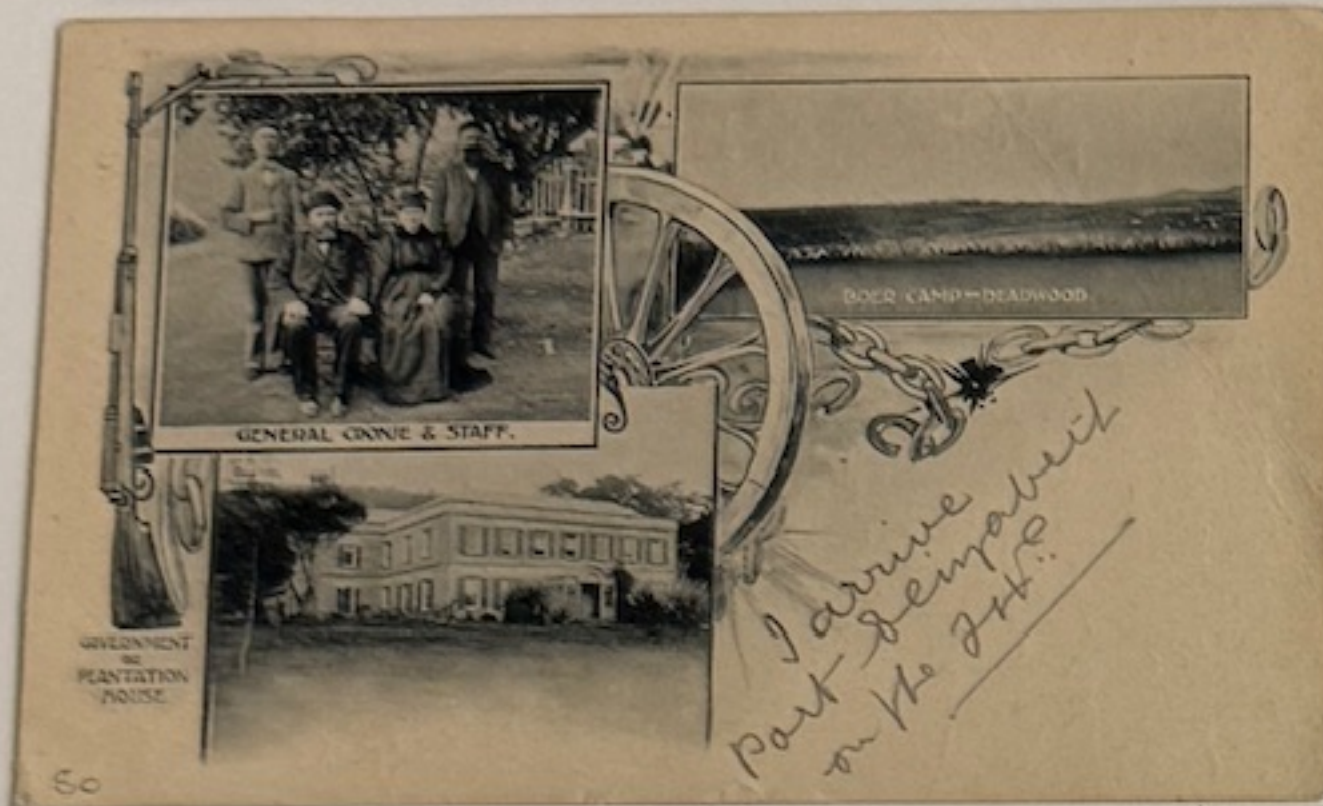 GENERAL CRONJE & STAFF.
BOER CAMP—DEADWOOD.
GOVERNMENT
OR
PLANTATION
HOUSE.
I arrive
Port
on the
50